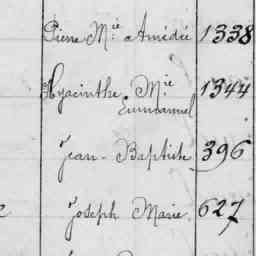 Pierre M.ie Amédée 1338
Hyacinthe M.ie 1344
Emmanuel
Jean-Baptiste 396
Joseph Marie 627